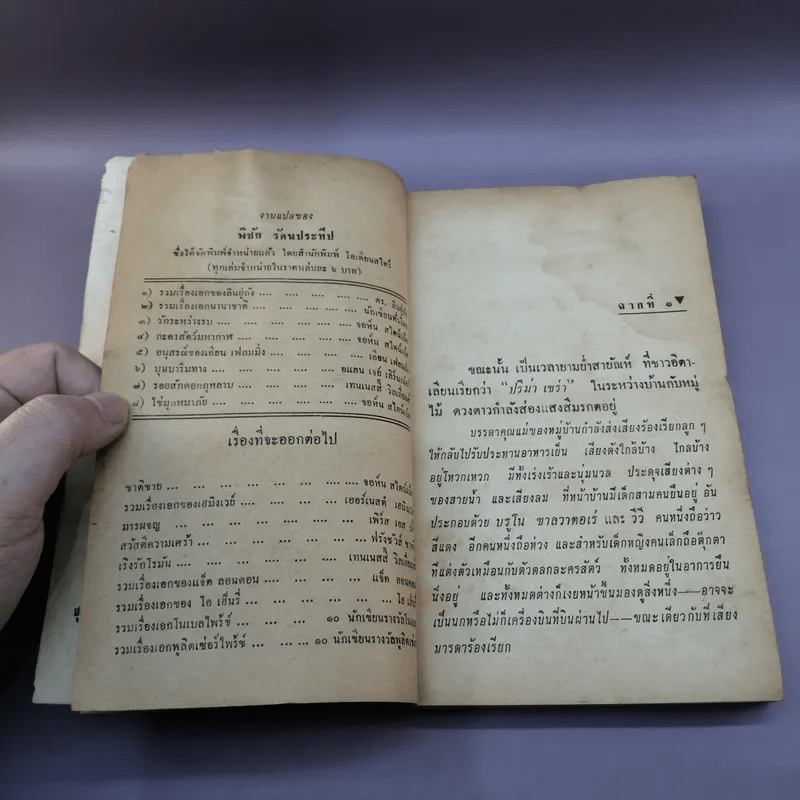 งานแปลของ
พิชัย รัตนประทีป
ซึ่งได้จัดพิมพ์จำหน่ายแล้ว โดยสำนักพิมพ์ โอเดียนสโตร์
(ทุกเล่มจำหน่ายในราคาเล่มละ ๖ บาท)
๑) รวมเรื่องเอกของลินยู่ถัง .... ... ... ... ดร. ลินยู่ถัง
๒) รวมเรื่องเอกนานาชาติ ... ... ... นักเขียนทั่วโลก
๓) รักระหว่างรบ ... ... ... ... จอห์น สไตน์เบ็ค
๔) ละครสัตว์มหากาฬ ... ... ... จอห์น สไตน์เบ็ค
๕) อนุสรณ์ของเอียน เฟลมมิ่ง ... ... เอียน เฟลมมิ่ง
๖) บุษบาริมทาง ... ... ... อแลน เจย์
๗) รอยสักดอกกุหลาบ ... ... ... เทนเนสสี วิลเลียมส์
๘) ไข่มุกหมาภัย ... ... ... จอห์น สไตน์เบ็ค
เรื่องที่จะออกต่อไป
ชาติชาย ... ... ... ... ... จอห์น สไตน์เบ็ค
รวมเรื่องเอกของเฮมิงเวย์ ... ... ... เออร์เนสต์ เฮมิงเวย์
มารผจญ ... ... ... ... ... เพิร์ล เอส
สวัสดีความเศร้า ... ... ... ... ฟรังซัวส์
เริงรักโรมัน ... ... ... ... เทนเนสสี วิลเลียมส์
รวมเรื่องเอกของแจ็ค ลอนดอน ... ... ... แจ็ค ลอนดอน
รวมเรื่องเอกของ โอ เฮ็นรี่ ... ... ... ... โอ เฮ็นรี่
รวมเรื่องเอกโนเบลไพร้ซ์ ... ... ... ๑๐ นักเขียนรางวัลโนเบล
รวมเรื่องเอกพูลิตเซ่อร์ไพร้ซ์ ... ... ... ๑๐ นักเขียนรางวัลพูลิตเซ่อร์
ฉากที่ ๑
ขณะนั้น เป็นเวลายามย่ำสายัณห์ ที่ชาวอิตา-
เลียนเรียกว่า "ปรีม่า เซร่า" ในระหว่างบ้านกับหมู่
ไม้ ดวงดาวกำลังส่องแสงสีมรกตอยู่
บรรดาคุณแม่ของหมู่บ้านกำลังส่งเสียงร้องเรียกลูก ๆ
ให้กลับไปรับประทานอาหารเย็น เสียงดังใกล้บ้าง ไกลบ้าง
อยู่โหวกเหวก มีทั้งเร่งเร้าและนุ่มนวล ประดุจเสียงต่าง ๆ
ของสายน้ำ และเสียงลม ที่หน้าบ้านมีเด็กสามคนยืนอยู่ อัน
ประกอบด้วย บรูโน ซาลวาตอเร่ และ วีวี คนหนึ่งถือว่าว
สีแดง อีกคนหนึ่งถือห่วง และสำหรับเด็กหญิงคนเล็กถือตุ๊กตา
ที่แต่งตัวเหมือนกับตัวตลกละครสัตว์ ทั้งหมดอยู่ในอาการยืน
นิ่งอยู่ และทั้งหมดต่างก็เงยหน้าขึ้นมองดูสิ่งหนึ่ง——อาจจะ
เป็นนกหรือไม่ก็เครื่องบินที่บินผ่านไป——ขณะเดียวกับที่เสียง
มารดาร้องเรียก